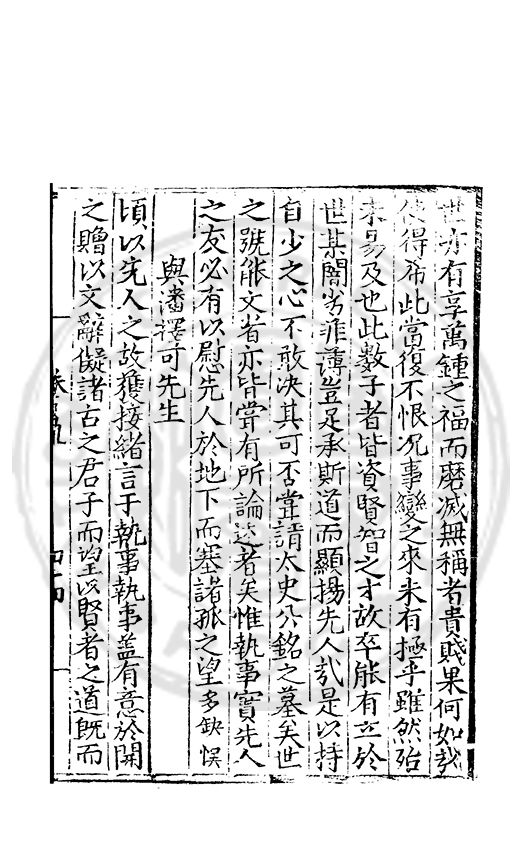 世亦有享萬鍾之福而磨滅無稱者貴賤果何如哉
使得希此當復不恨况事變之來未有極乎雖然殆
未易及也此數子者皆資賢智之才故卒能有立於
世某闇劣菲薄豈足承斯道而顯揚先人哉是以持
自少之心不敢決其可否嘗請太史公銘之墓矣世
之號能文者亦皆嘗有所論述者矣惟執事實先人
之友必有以慰先人於地下而塞諸孤之望多缺悞
與潘擇可先生
頃以先人之故獲接緒言于執事執事葢有意於開
之贈以文辭儗諸古之君子而望以賢者之道既而